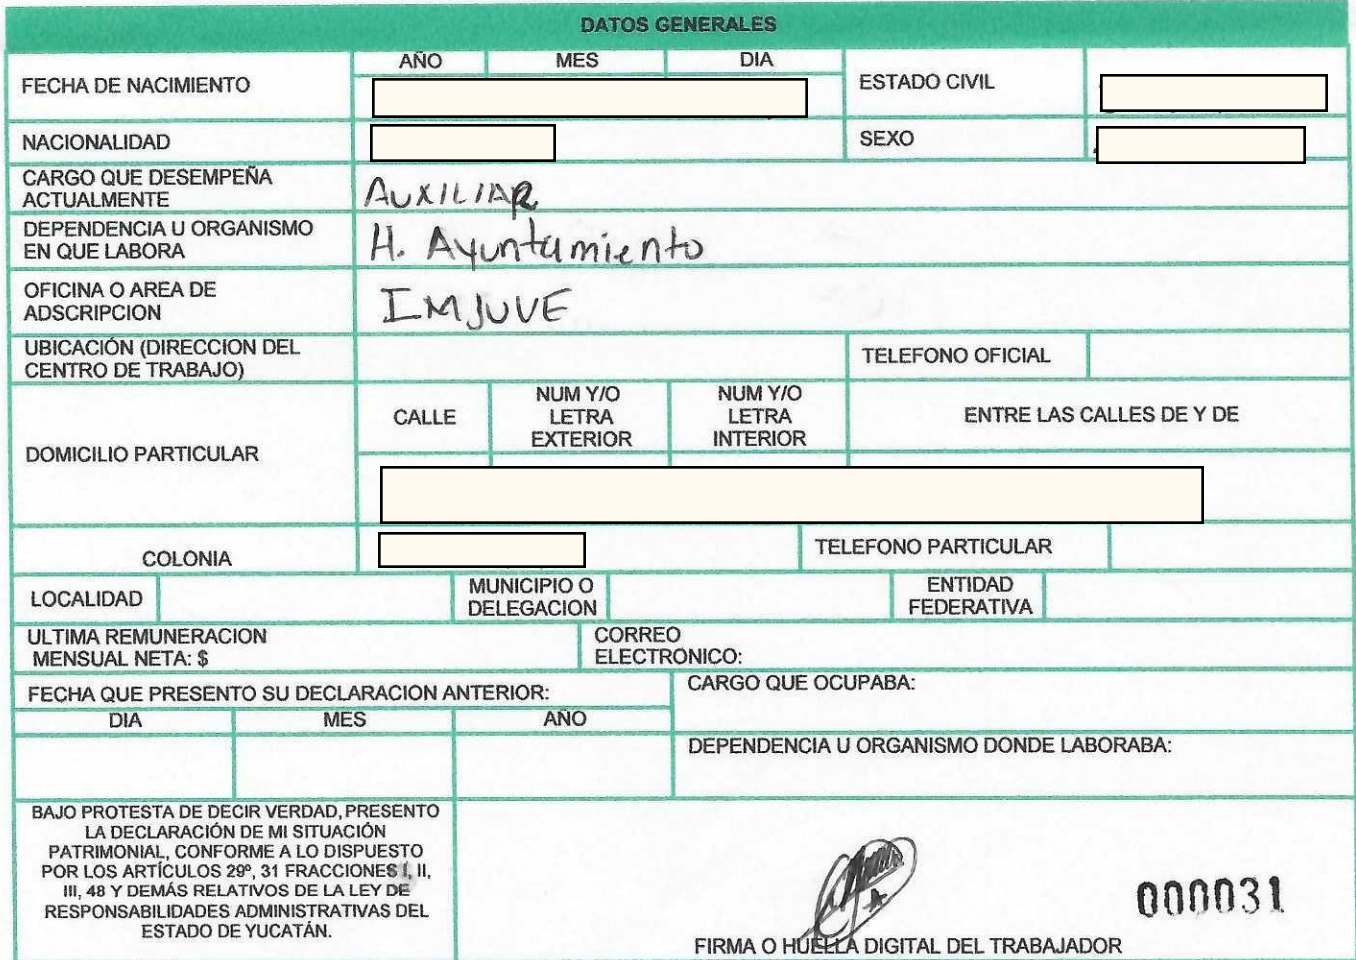 DATOS GENERALES
FECHA DE NACIMIENTO
AÑO MES DIA
ESTADO CIVIL
NACIONALIDAD
SEXO
CARGO QUE DESEMPEÑA
ACTUALMENTE
AUXILIAR
DEPENDENCIA U ORGANISMO
EN QUE LABORA
H. Ayuntamiento
OFICINA O AREA DE
ADSCRIPCION
IMJUVE
UBICACIÓN (DIRECCION DEL
CENTRO DE TRABAJO)
TELEFONO OFICIAL
DOMICILIO PARTICULAR
CALLE
NUM Y/O
LETRA
EXTERIOR
NUM Y/O
LETRA
INTERIOR
ENTRE LAS CALLES DE Y DE
COLONIA
TELEFONO PARTICULAR
LOCALIDAD
MUNICIPIO O
DELEGACION
ENTIDAD
FEDERATIVA
ULTIMA REMUNERACION
MENSUAL NETA: $
CORREO
ELECTRONICO:
FECHA QUE PRESENTO SU DECLARACION ANTERIOR:
DIA MES AÑO
CARGO QUE OCUPABA:
DEPENDENCIA U ORGANISMO DONDE LABORABA:
BAJO PROTESTA DE DECIR VERDAD, PRESENTO
LA DECLARACIÓN DE MI SITUACIÓN
PATRIMONIAL, CONFORME A LO DISPUESTO
POR LOS ARTÍCULOS 29º, 31 FRACCIONES I, II,
III, 48 Y DEMÁS RELATIVOS DE LA LEY DE
RESPONSABILIDADES ADMINISTRATIVAS DEL
ESTADO DE YUCATÁN.
000031
FIRMA O HUELLA DIGITAL DEL TRABAJADOR